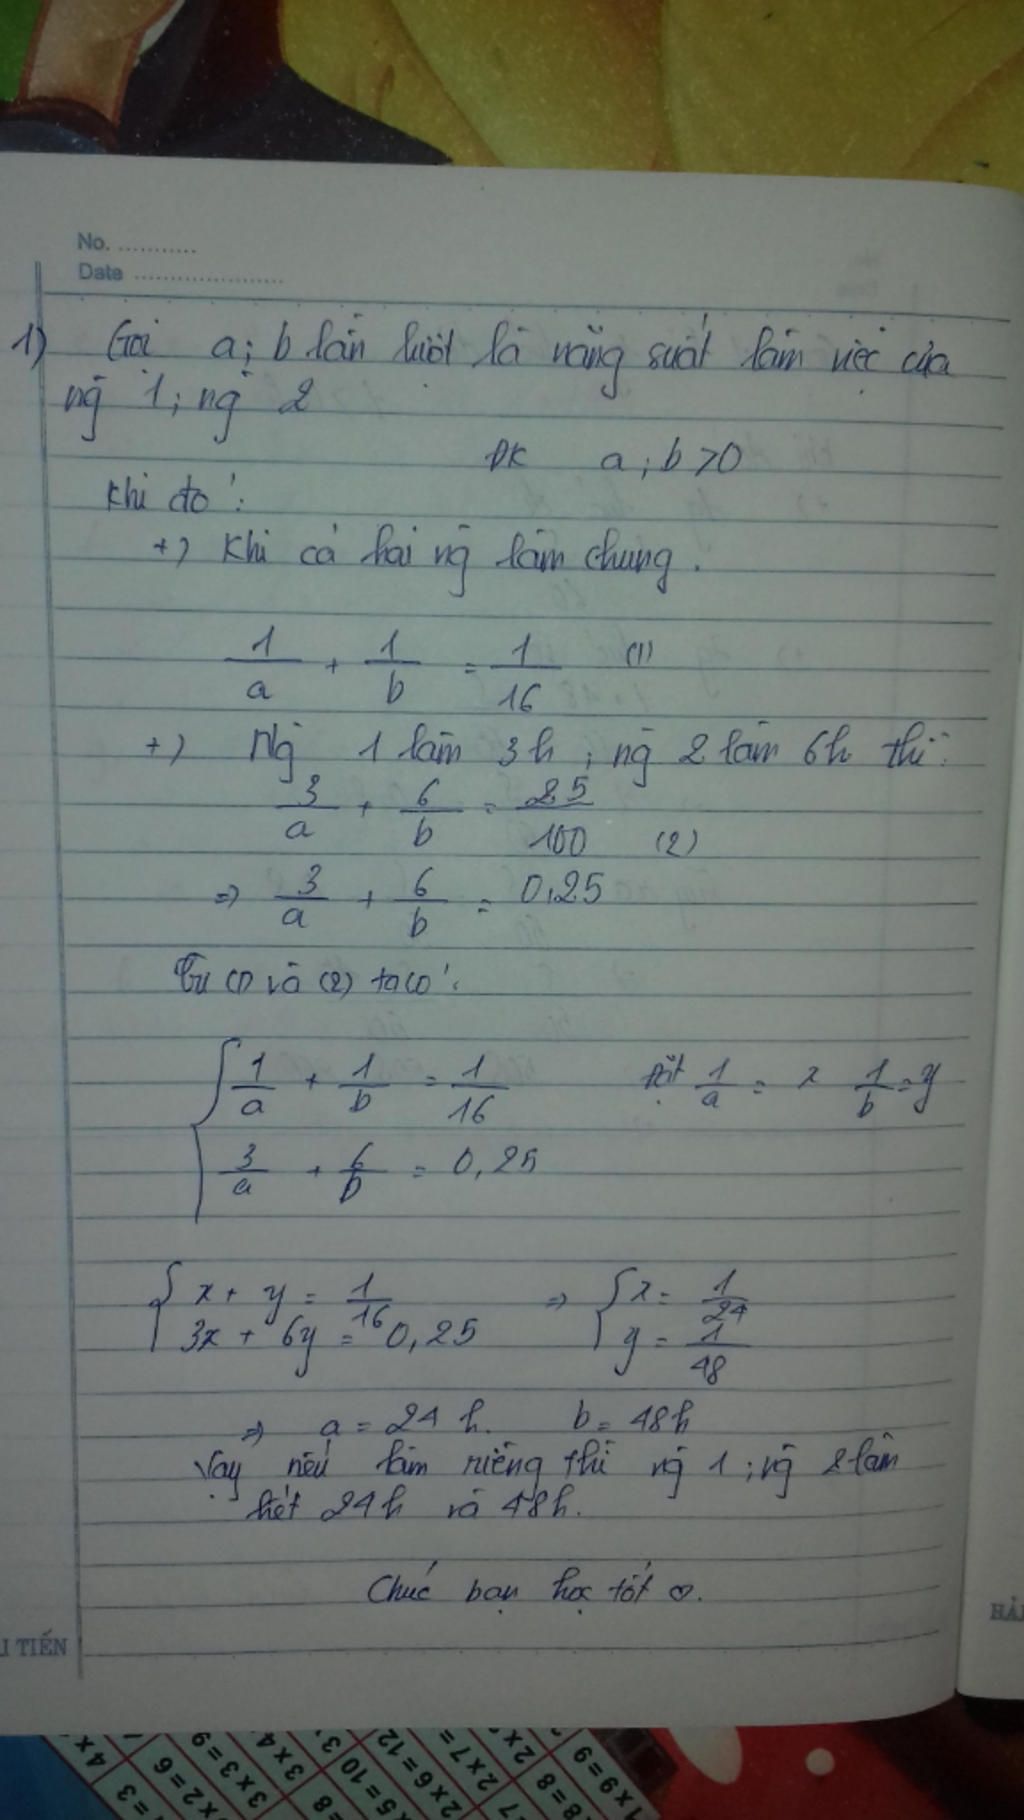 No. ...........
Date ......................
1) Gọi a; b lần lượt là năng suất làm việc của
ng 1; ng 2
ĐK a; b > 0
Khi đó:
+) Khi cả hai ng làm chung.
1/a + 1/b = 1/16 (1)
+) Ng 1 làm 3h; ng 2 làm 6h thì:
3/a + 6/b = 25/100 (2)
=> 3/a + 6/b = 0,25
Từ (1) và (2) ta có:
{ 1/a + 1/b = 1/16 Đặt 1/a = x 1/b = y
3/a + 6/b = 0,25
{ x + y = 1/16 => { x = 1/24
3x + 6y = 0,25 y = 1/48
=> a = 24 h. b = 48h
Vậy nếu làm riêng thì ng 1; ng 2 làm
hết 24h và 48h.
Chúc bạn học tốt ♡.
I TIẾN
HẢI
4 x
= 3
x 2 = 6
3 x 3 = 9
3 x 4
= 8
x 5 = 10
2 x 6 = 12
2 x 7 =
2 x
x 8 = 8
1 x 9 = 9